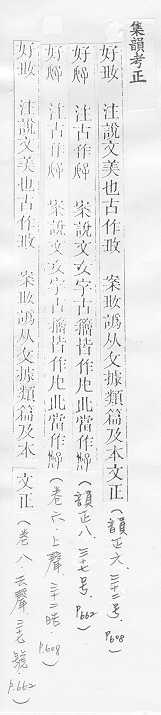 集韻考正
好㚽 注說文美也古作㪃 案㪃譌从攵據類篇及本文正(韻正六.三十二号.P608)
好𡥆 注古作𡥆 案說文女字古籀皆作𠨰此當作𡥆(韻正八.三十七号.P662)
好𡥆 注古作𡥆 案說文女字古籀皆作𠨰此當作𡥆(卷六.上聲.三十二晧.P.608)
好㚽 注說文美也古作㪃 案㪃譌从攵據類篇及本文正(卷八.去聲.三十七號.P.662)